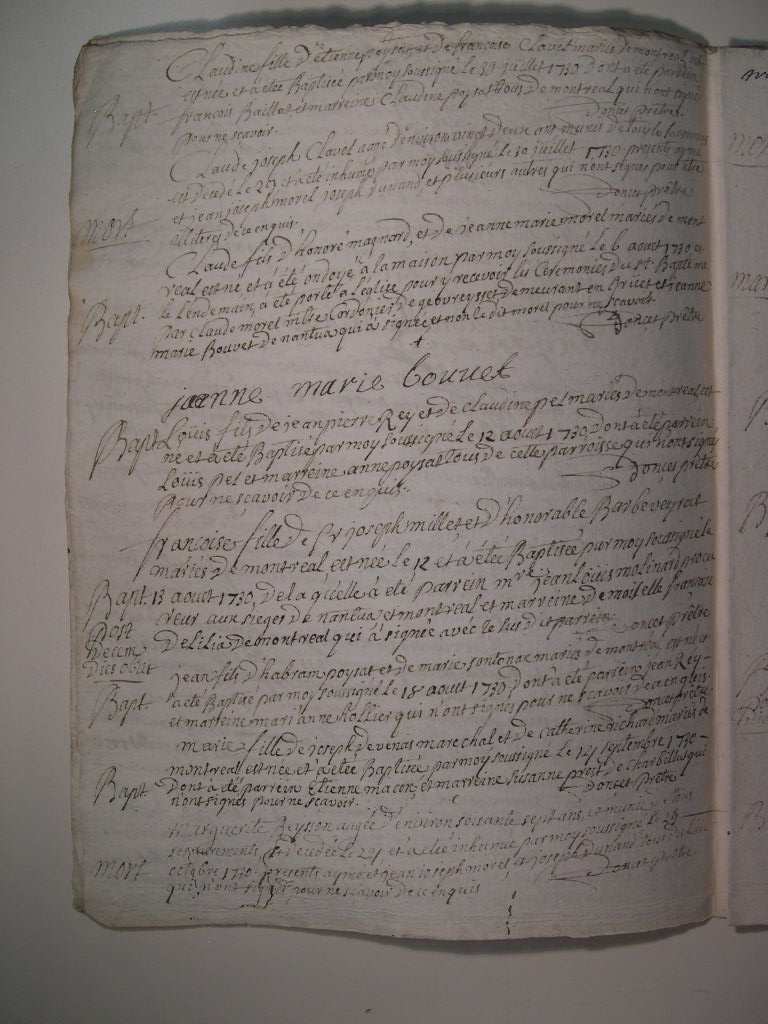 Claudine fille d'Etienne poysat et de francoise Clavel mariés de montreal
est née et a eté Baptisée par moy soussigné le juillet 1730 dont a eté parrein
Bapt. francois Baillot et marreine Claudine poysat tous de montreal qui n'ont signés
pour ne scavoir. Doncet prêtre
Claude joseph Clavel agé d'environ vingt deux ans munis de tous les sacrements
est decedé le 29 et a eté inhumé par moy soussigné le 30 juillet 1730 presents aymé
mort et jean joseph morel joseph durand et plusieurs autres qui n'ont signés pour etre
illiteres de ce enquis. Doncet prêtre
Claude fils d'honoré maǵnard, et de jeanne marie morel mariés de mont
real est né et a été ondoyé a la maison par moy soussigné le 6 aout 1730
le Lendemain, a eté porté a l'église pour y recevoir les Ceremonies du st Baptême
Bapt. par Claude morel mtre Cordonier de gebvreysset demeurant en et jeanne
marie Bouvet de nantua qui a signée et non le dit morel pour ne scavoir.
Doncet prêtre
jeanne marie bouvet
Bapt Loüis fils de jean pierre Rey et de claudine pel mariés de montreal est
né et a eté Baptisé par moy soussigné Le 12 aout 1730, dont a eté parrein
Loüis pel et marreine anne poysat tous de cette parroisse qui n'ont signé
pour ne scavoir de ce enquis. Doncet prêtre
francoise fille de sr joseph millet et d'honorable Barbe veyrat
mariés de montreal, est née le 12 et a eté Baptisée par moy soussigné le
Bapt. 13 aout 1730, de laqüelle a eté parrein mre jean Loüis molinard procu
post reur aux sieges de nantua et montreal et marreine demoiselle francoise
decem Delilia de montreal qui a signée avec le susdit parrein. Doncet prêtre
dies obiit
jean fils d'habram poysat et de marie sontonax mariés de montreal est né et
Bapt a eté Baptisé par moy soussigné le 18 aout 1730, dont a eté parrein jean Rey
et marreine mari anne Rollier qui n'ont signés pour ne scavoir de ce enquis.
Doncet prêtre
marie fille de joseph devenas marechal et de catherine richard mariés de
montreal est née et a eté Baptisée par moy soussigné le septembre 1730
Bapt. dont a eté parrein Etienne macon, et marreine Susanne prost de charbillat qui
n'ont signés pour ne scavoir. Doncet prêtre
marguerite Beysson agée d'environ soixante sept ans,
sacrements, est decedée Le et a eté inhumée par moy soussigné le 25
mort octobre 1730 presents aymé et jean joseph morel, et joseph durand
qui n'ont signés pour ne scavoir de ce enquis Doncet prêtre